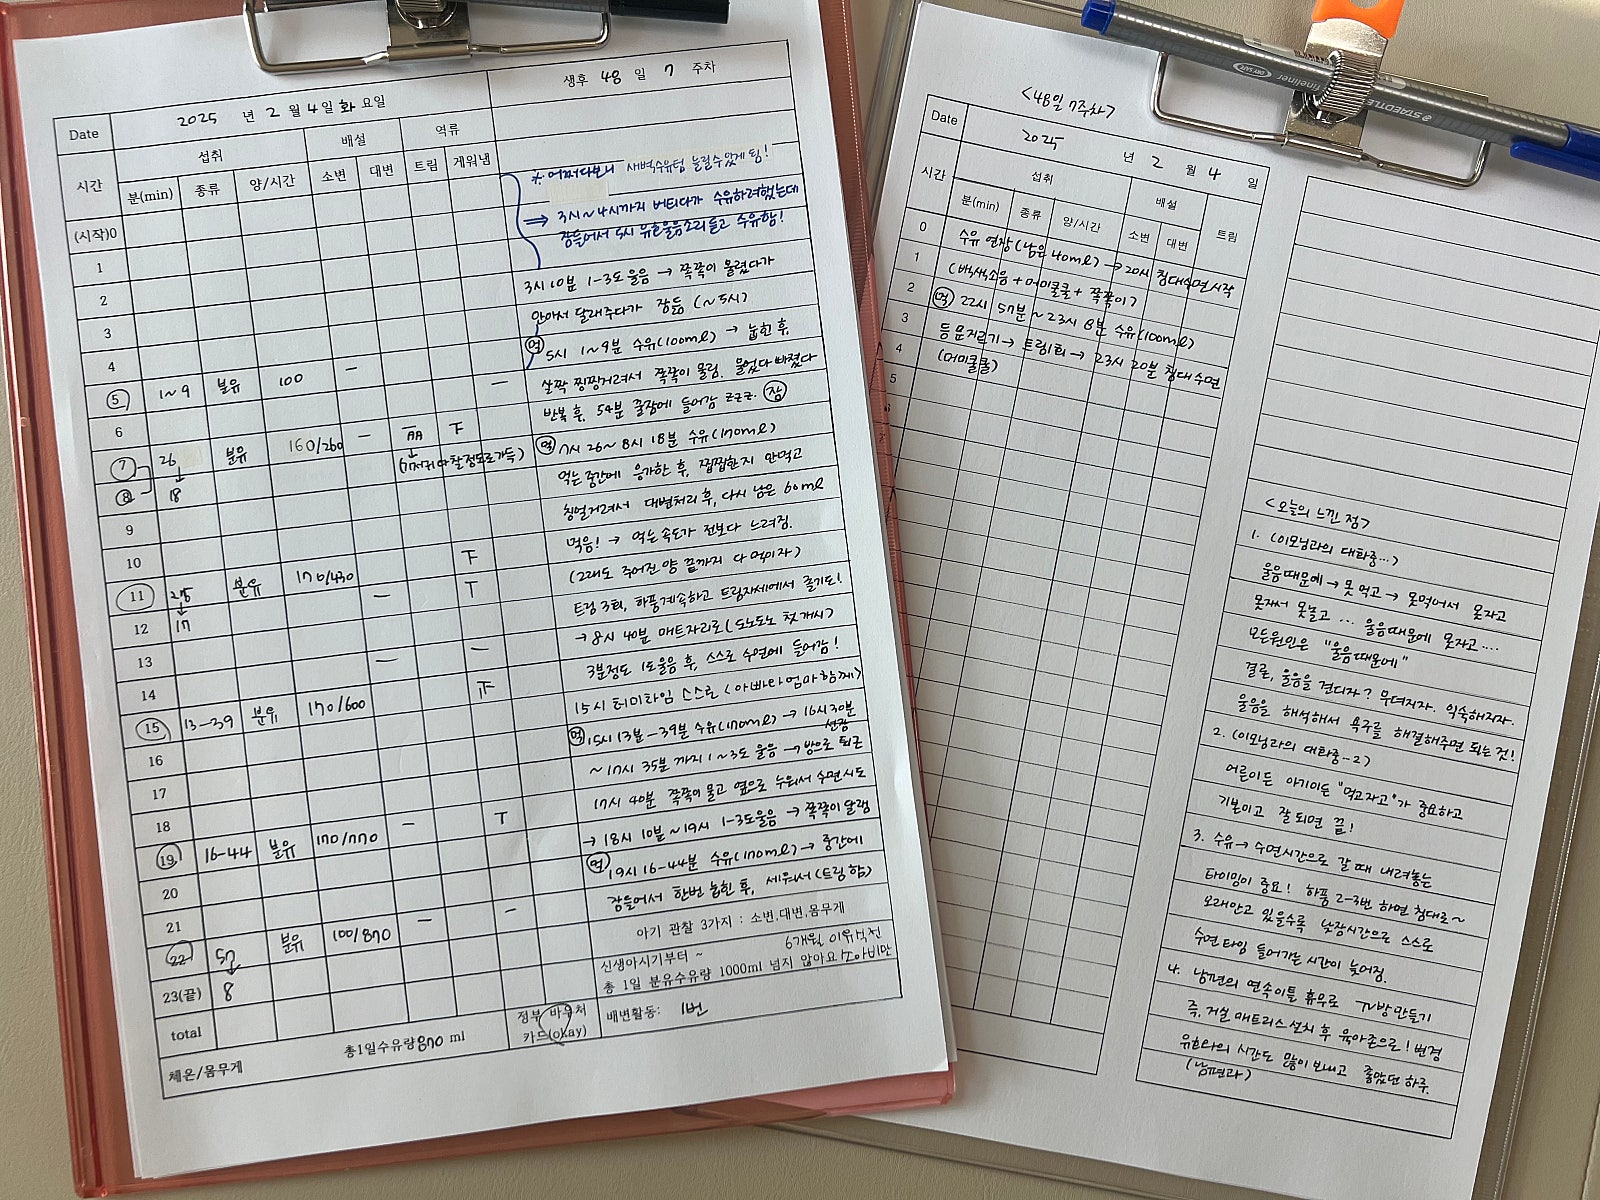 2025 년 2 월 4 일 화 요일
생후 48 일 7 주차
Date
시간
섭취
배설
역류
분(min) 종류 양/시간 소변 대변 트림 게워냄
(시작)0
1
2
3
4
5 1~9 분유 100 — —
6
7 26 분유 160/260 — AA 干
(기저귀 다 찰 정도로 가득)
8 18
9
10 干
11 분유 170/430 — T
12 17
13 — —
14 干
15 13-39 분유 170/600
16
17
18 — T
19 16-44 분유 170/770
20
21 — —
22 57 분유 100/870
23(끝) 8
total
체온/몸무게
총1일수유량 870 ml
정부 바우처
카드(okay)
배변활동: 1번
* 어쩌다보니 새벽수유텀 늘릴수있게 됨!
⇒ 3시~4시까지 버티다가 수유하려했는데
잠들어서 5시 유호울음소리듣고 수유함!
3시 10분 1-3도 울음 → 쪽쪽이 물렸다가
안아서 달래주다가 잠듦 (~5시)
먹 5시 1~9분 수유(100ml) → 눕힌 후,
살짝 찡찡거려서 쪽쪽이 물림. 물었다 빠졌다
반복 후, 54분 꿀잠에 들어감 zzz. 잠
먹 7시 26~8시 18분 수유(170ml)
먹는 중간에 응가한 후, 찝찝한지 안먹고
칭얼거려서 대변처리 후, 다시 남은 60ml
먹음! → 먹는 속도가 전보다 느려짐.
(그래도 주어진 양 끝까지 다 먹이자)
트림 3회, 하품계속하고 트림자세에서 즐기도!
→ 8시 40분 매트자리로 (도노도노 첫 개시)
3분정도 1도울음 후, 스스로 수면에 들어감!
15시 터미타임 스스로 (아빠랑 엄마 함께)
먹 15시 13분-39분 수유(170ml) → 16시 30분
~17시 35분까지 1~3도 울음 → 방으로 퇴근
17시 40분 쪽쪽이 물고 옆으로 누워서 수면시도
→ 18시 10분~19시 1-3도울음 → 쪽쪽이 달램
먹 19시 16-44분 수유(170ml) → 중간에
잠들어서 한번 눕힌 후, 세워서 (트림 함)
아기 관찰 3가지 : 소변,대변,몸무게
6개월 이유식전
신생아시기부터 ~
총 1일 분유수유량 1000ml 넘지 않아요 소아비만
<48일 7주차>
Date 2025 년 2 월 4 일
시간
섭취
배설
분(min) 종류 양/시간 소변 대변 트림
0
1
2
3
4
5
수유 연장(남은 40ml) → 20시 침대수면시작
(백색소음 + 머미쿨쿨 + 쪽쪽이)
먹 22시 57분 ~ 23시 8분 수유(100ml)
등 문지르기 → 트림1회 → 23시 20분 침대수면
(머미쿨쿨)
<오늘의 느낀 점>
1. (이모님과의 대화중…)
울음때문에 → 못 먹고 → 못먹어서 못자고
못자서 못놀고 … 울음때문에 못자고….
모든원인은 "울음때문에"
결론, 울음을 견디자? 무뎌지자. 익숙해지자.
울음을 해석해서 욕구를 해결해주면 되는 것!
2. (이모님과의 대화중-2)
어른이든 아기이든 "먹고자고"가 중요하고
기본이고 잘 되면 끝!
3. 수유 → 수면시간으로 갈 때 내려놓는
타이밍이 중요! 하품 2-3번 하면 침대로~
오래안고 있을수록 낮잠시간으로 스스로
수면타임 들어가는 시간이 늦어짐.
4. 남편의 연속이틀 휴무로 TV방 만들기
즉, 거실 매트리스 설치 후 육아존으로! 변경
유호와의 시간도 많이 보내고 좋았던 하루.
(남편과)
STAEDTLER
fineliner
DRY SAFE